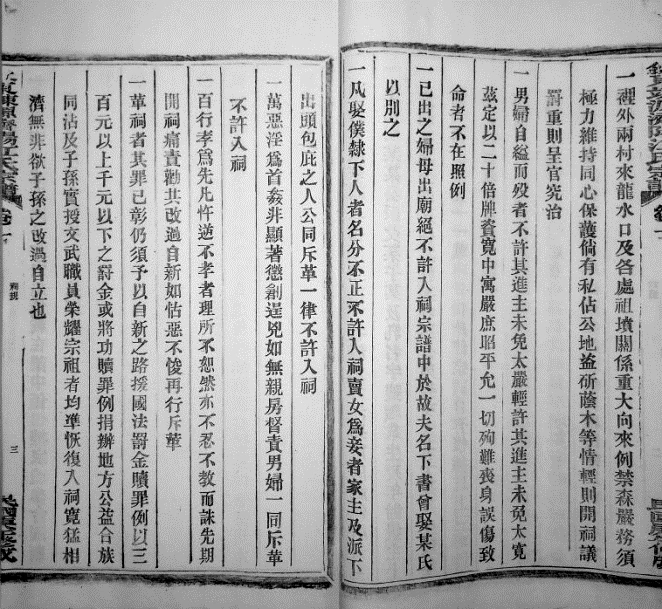 一裡外兩村來龍水口及各處祖墳關係重大向來例禁森嚴務須
極力維持同心保護倘有私佔公地盜斫蔭木等情輕則開祠議
罰重則呈官究治
一男婦自縊而歿者不許其進主未免太嚴輕許其進主未免太寬
茲定以二十倍牌資寬中寓嚴庶昭平允一切殉難喪身誤傷致
命者不在照例
一已出之婦母出廟絕不許入祠宗譜中於故夫名下書曾娶某氏
以別之
一凡娶僕隸下人者名分不正不許入祠賣女為妾者家主及派下
出頭包庇之人公同斥革一律不許入祠
一萬惡淫為首姦非顯著懲創逞兇如無親房督責男婦一同斥革
不許入祠
一百行孝為先凡忤逆不孝者理所不恕然亦不忍不教而誅先期
開祠痛責勸其改過自新如怙惡不悛再行斥革
一革祠者其罪已彰仍須予以自新之路援國法罰金贖罪例以三
百元以上千元以下之罰金或將功贖罪例捐辦地方公益合族
同沾及子孫實授文武職員榮耀宗祖者均準恢復入祠寬猛相
濟無非欲子孫之改過自立也
三